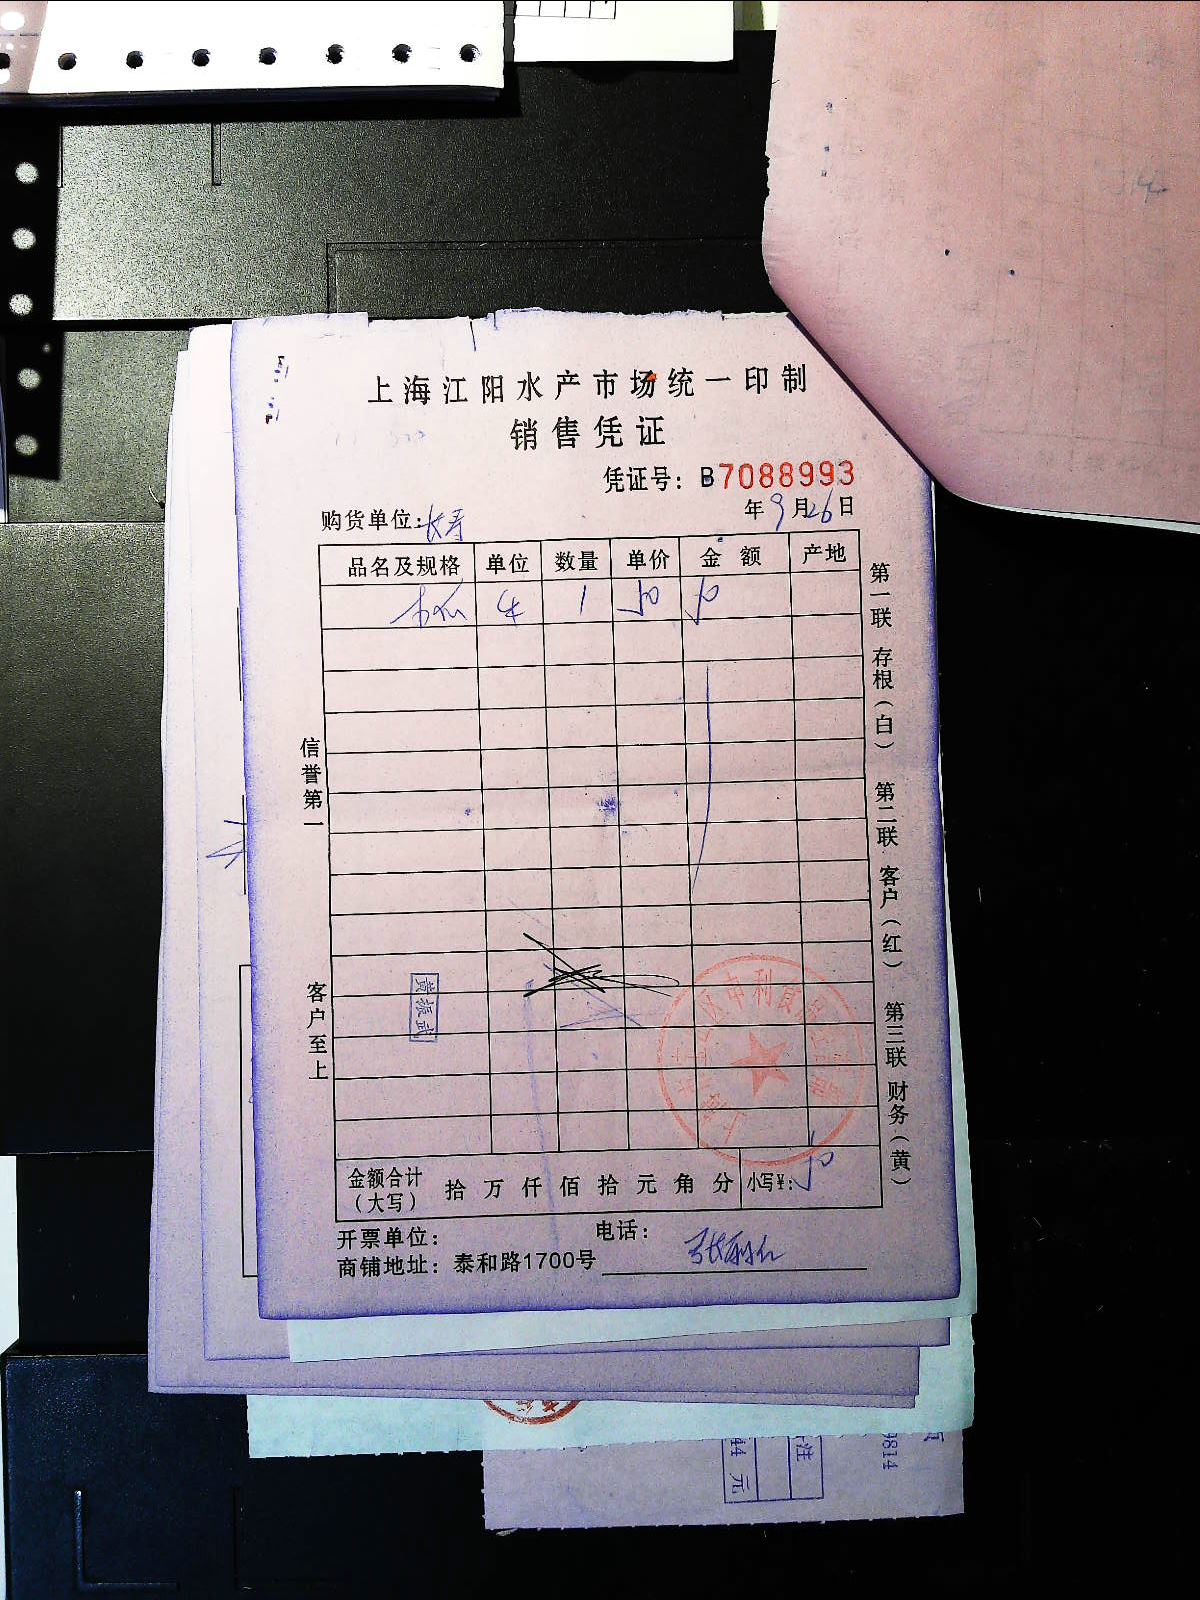 上海江阳水产市场统一印制
销售凭证
凭证号：B7088993
购货单位：长寿 年9月26日
品名及规格 单位 数量 单价 金额 产地
1 50 50
信誉第一
客户至上
第一联 存根（白） 第二联 客户（红） 第三联 财务（黄）
黄振武
金额合计（大写） 拾 万 仟 佰 拾 元 角 分 小写¥：50
开票单位： 电话：
商铺地址：泰和路1700号
注
44 元
9814